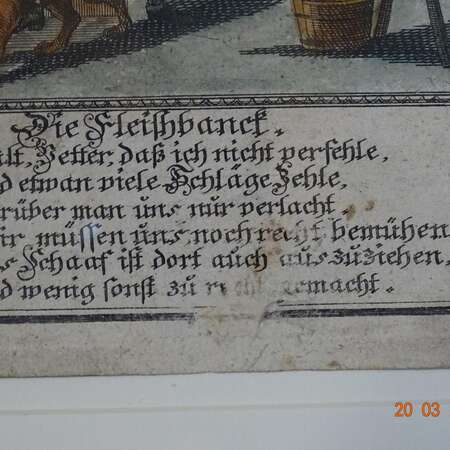 Die Fleishbanck.
alt, Vetter, daß ich nicht verfehle,
d etwan viele Schläge Zehle,
rüber man uns nur verlacht.
ir müssen uns noch recht bemühen
s Schaaf ist dort auch auszuziehen,
d wenig sonst zu recht gemacht.
20 03